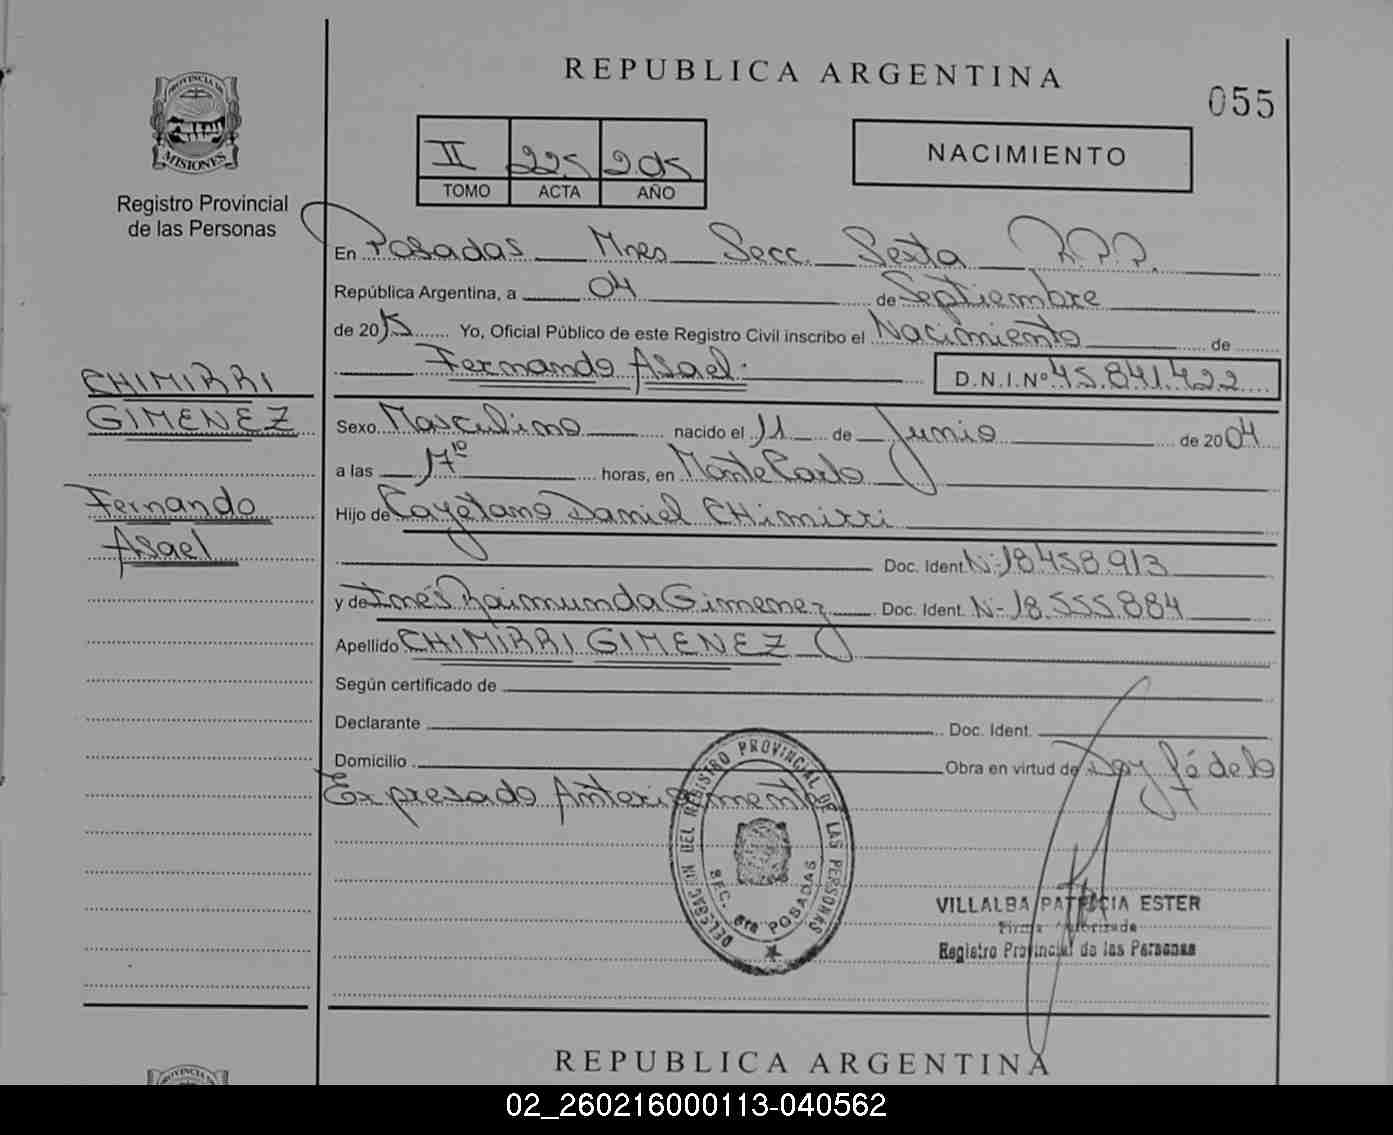 REPUBLICA ARGENTINA
055
PROVINCIA DE
MISIONES
Registro Provincial
de las Personas
II 225 2015
TOMO ACTA AÑO
NACIMIENTO
En Posadas Mnes Secc. Sexta R.P.P.
República Argentina, a 04 de Septiembre
de 2015 Yo, Oficial Público de este Registro Civil inscribo el Nacimiento de
Fernando Asael. D.N.I.Nº 45.841.422
CHIMIRRI
GIMENEZ
Fernando
Asael
Sexo Masculino nacido el 11 de Junio de 2004
a las 17¹⁰ horas, en Monte Carlo
Hijo de Cayetano Daniel CHimirri
Doc. Ident. Nº 18.458.913
y de Inés Raimunda Gimenez Doc. Ident. Nº 18.555.884
Apellido CHIMIRRI GIMENEZ
Según certificado de
Declarante Doc. Ident.
Domicilio Obra en virtud de Doy fé de lo
Expresado Anteriormente
DELEGACION DEL REGISTRO PROVINCIAL DE LAS PERSONAS
SEC. 6ta POSADAS
VILLALBA PATRICIA ESTER
Firma Autorizada
Registro Provincial de las Personas
REPUBLICA ARGENTINA
PROVINCIA DE
02_260216000113-040562